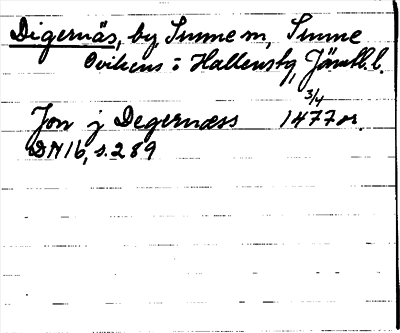 Digernäs, by, Sunne sn, Sunne
Ovikens o Hallens tg, Jämtl. l.
3/4
Jon j Degernæss 1477 or.
DN 16, s. 289